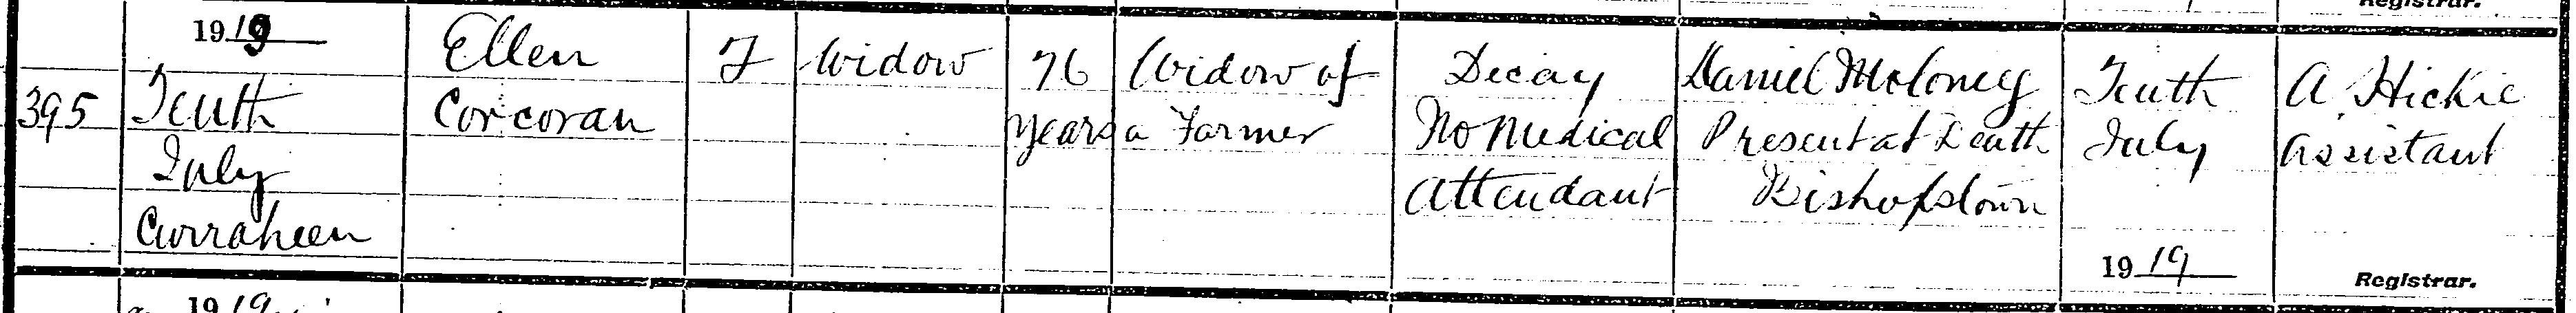 Registrar.
1919
395
Tenth
July
Curraheen
Ellen
Corcoran
F
Widow
76
years
Widow of
a Farmer
Decay
No Medical
Attendant
Daniel Moloney
Present at Death
Bishopstown
Tenth
July
1919
A Hickie
Assistant
Registrar.
1919